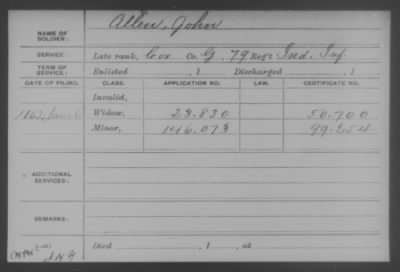 Allen, John
NAME OF SOLDIER:
SERVICE: Late rank, Cor Co. G, 79 Reg't Ind. Inf.
TERM OF SERVICE: Enlisted , 1 Discharged , 1
DATE OF FILING. CLASS. APPLICATION NO. LAW. CERTIFICATE NO.
Invalid,
1863, June Widow, 23.830 50.700
Minor, 146.073 99.254
ADDITIONAL SERVICES:
REMARKS:
Died , 1 , at